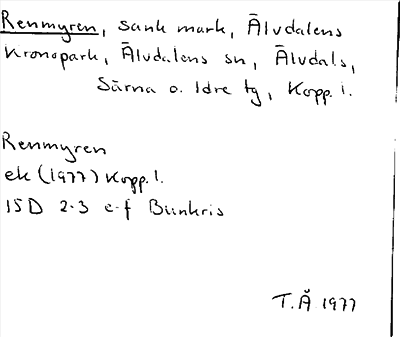 Renmyren, sank mark, Älvdalens
Kronopark, Älvdalens sn, Älvdals,
Särna o. Idre tg, Kopp. l.
Renmyren
ek (1977) Kopp. l.
15D 2-3 e-f Bunkris
T.Å 1977